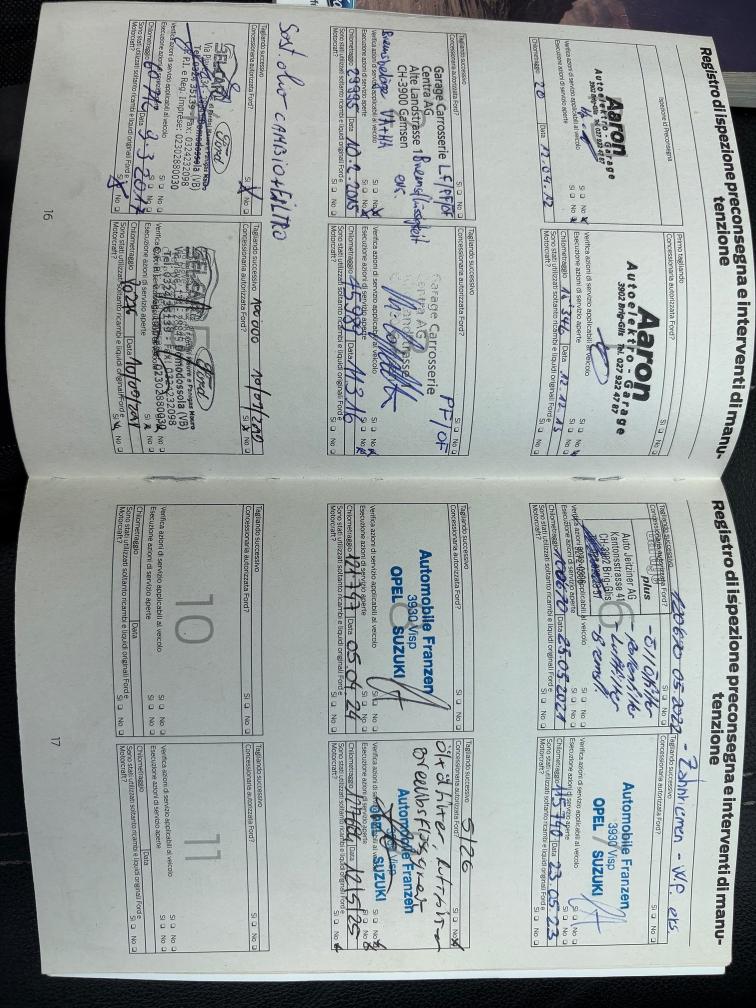 Registro di ispezione preconsegna e interventi di manu-
tenzione
Ispezione di Preconsegna
Aaron
Autoelektro - Garage
3902 Brig-Glis Tel. 027 922 47 87
Verifica azioni di servizio applicabili al veicolo
Sì No
Esecuzione azioni di servizio aperte
Sì No
Chilometraggio 20 Data 12.04.12
Primo tagliando
Concessionaria autorizzata Ford?
Sì No
Aaron
Autoelektro - Garage
3902 Brig-Glis Tel. 027 922 47 87
Verifica azioni di servizio applicabili al veicolo
Sì No
Esecuzione azioni di servizio aperte
Sì No
Chilometraggio Data 12.12.13
Sono stati utilizzati soltanto ricambi e liquidi originali Ford e
Motorcraft?
Sì No
Tagliando successivo
Concessionaria autorizzata Ford?
Sì No
Garage Carrosserie
Centra AG
Alte Landstrasse 1
CH-3900 Gamsen
Bremsflüssigkeit
ers
Bremsbeläge VA+HA
Verifica azioni di servizio applicabili al veicolo
Sì No
Esecuzione azioni di servizio aperte
Sì No
Chilometraggio 29995 Data 10.2.2015
Sono stati utilizzati soltanto ricambi e liquidi originali Ford e
Motorcraft?
Sì No
Tagliando successivo
Concessionaria autorizzata Ford?
Sì No
Garage Carrosserie
Centra AG
PF/OF
Verifica azioni di servizio applicabili al veicolo
Sì No
Esecuzione azioni di servizio aperte
Sì No
Chilometraggio Data 11.3.16
Sono stati utilizzati soltanto ricambi e liquidi originali Ford e
Motorcraft?
Sì No
Sost. olio CAMBIO+FILTRO
Tagliando successivo
Concessionaria autorizzata Ford?
Sì No
Ford
Domodossola (VB)
Fax: 0324232098
P.I. e Reg. Imprese: 02302880030
Verifica azioni di servizio applicabili al veicolo
Sì No
Esecuzione azioni di servizio aperte
Sì No
Chilometraggio Data 9.3.2017
Sono stati utilizzati soltanto ricambi e liquidi originali Ford e
Motorcraft?
Sì No
Tagliando successivo
Concessionaria autorizzata Ford?
Sì No
Ford
Domodossola (VB)
Verifica azioni di servizio applicabili al veicolo
Sì No
Esecuzione azioni di servizio aperte
Sì No
Chilometraggio Data
Sono stati utilizzati soltanto ricambi e liquidi originali Ford e
Motorcraft?
Sì No
16
Registro di ispezione preconsegna e interventi di manu-
tenzione
05.2022 - Zahnriemen - W.P. ers.
Tagliando successivo
Concessionaria autorizzata Ford?
plus
Auto Jeitziner AG
Kantonsstrasse 41
CH-3902 Brig-Glis
- Öl/Ölfilter
- Luftfilter
6
Verifica azioni di servizio applicabili al veicolo
Sì No
Esecuzione azioni di servizio aperte
Sì No
Chilometraggio Data 25.05.2021
Sono stati utilizzati soltanto ricambi e liquidi originali Ford e
Motorcraft?
Sì No
Tagliando successivo
Concessionaria autorizzata Ford?
Sì No
Automobile Franzen
3930 Visp
OPEL / SUZUKI
Verifica azioni di servizio applicabili al veicolo
Sì No
Esecuzione azioni di servizio aperte
Sì No
Chilometraggio 115740 Data 23.05.23
Sono stati utilizzati soltanto ricambi e liquidi originali Ford e
Motorcraft?
Sì No
Tagliando successivo
Concessionaria autorizzata Ford?
Sì No
Automobile Franzen
3930 Visp
OPEL SUZUKI
8
Verifica azioni di servizio applicabili al veicolo
Sì No
Esecuzione azioni di servizio aperte
Sì No
Chilometraggio Data 05.04.24
Sono stati utilizzati soltanto ricambi e liquidi originali Ford e
Motorcraft?
Sì No
Tagliando successivo
5/26
Concessionaria autorizzata Ford?
Sì No
Ölfilter,
Automobile Franzen
3930 Visp
OPEL SUZUKI
Verifica azioni di servizio applicabili al veicolo
Sì No
Esecuzione azioni di servizio aperte
Sì No
Chilometraggio Data 12/5/25
Sono stati utilizzati soltanto ricambi e liquidi originali Ford e
Motorcraft?
Sì No
Tagliando successivo
Concessionaria autorizzata Ford?
Sì No
10
Verifica azioni di servizio applicabili al veicolo
Sì No
Esecuzione azioni di servizio aperte
Sì No
Chilometraggio Data
Sono stati utilizzati soltanto ricambi e liquidi originali Ford e
Motorcraft?
Sì No
Tagliando successivo
Concessionaria autorizzata Ford?
Sì No
11
Verifica azioni di servizio applicabili al veicolo
Sì No
Esecuzione azioni di servizio aperte
Sì No
Chilometraggio Data
Sono stati utilizzati soltanto ricambi e liquidi originali Ford e
Motorcraft?
Sì No
17